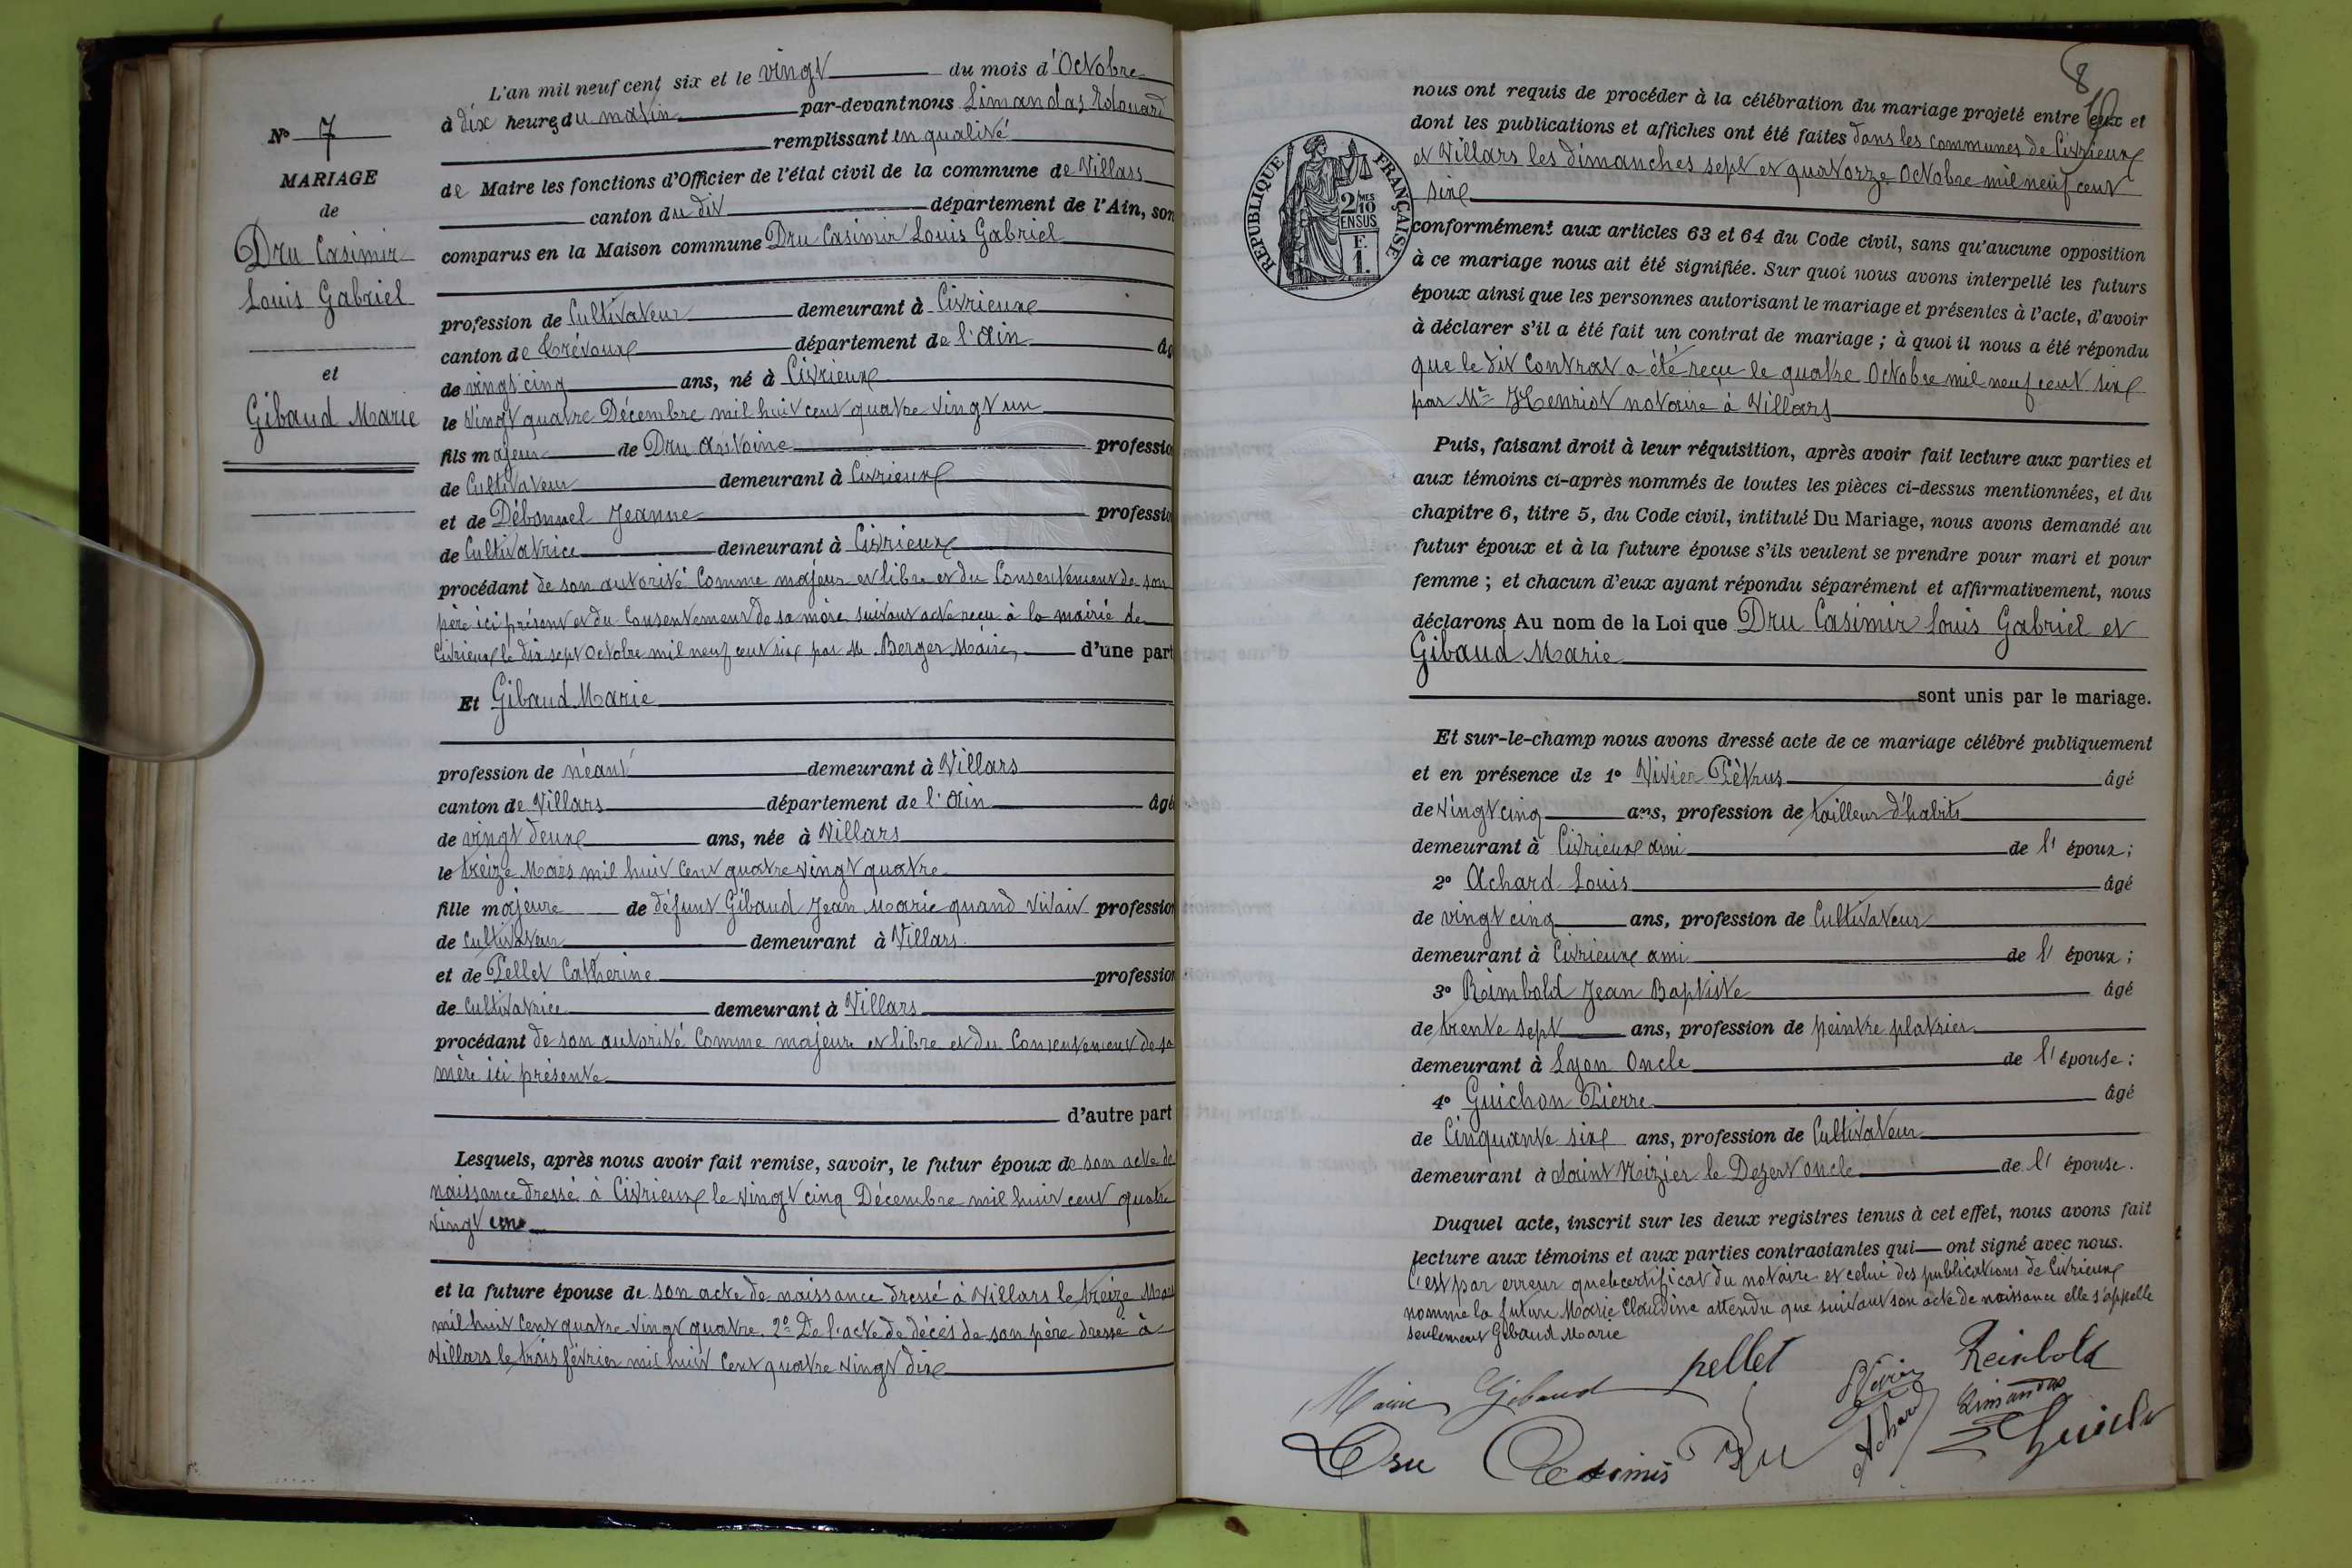 N° 7
MARIAGE
de
Dru Casimir
Louis Gabriel
et
Gibaud Marie
L'an mil neuf cent six et le vingt du mois d'Octobre
à dix heures du matin par-devant nous Limandas Edouard
remplissant en qualité
de Maire les fonctions d'Officier de l'état civil de la commune de Villars
canton du dit département de l'Ain, son
comparus en la Maison commune Dru Casimir Louis Gabriel
profession de Cultivateur demeurant à Civrieux
canton de Trévoux département de l'Ain âg
de vingt cinq ans, né à Civrieux
le vingt quatre Décembre mil huit cent quatre vingt un
fils majeur de Dru Antoine profession
de Cultivateur demeurant à Civrieux
et de Débonnel Jeanne profession
de Cultivatrice demeurant à Civrieux
procédant de son autorité Comme majeur et libre et du Consentement de son
père ici présent et du Consentement de sa mère suivant acte reçu à la mairie de
Civrieux le dix sept Octobre mil neuf cent six par M. Berger Maire, d'une part
Et Gibaud Marie
profession de néant demeurant à Villars
canton de Villars département de l'Ain âgé
de vingt deux ans, née à Villars
le treize Mars mil huit cent quatre vingt quatre
fille majeure de défunt Gibaud Jean Marie quand vivait profession
de cultivateur demeurant à Villars
et de Pellet Catherine profession
de cultivatrice demeurant à Villars
procédant de son autorité Comme majeure et libre et du Consentement de sa
mère ici présente
d'autre part
Lesquels, après nous avoir fait remise, savoir, le futur époux de son acte de
naissance dressé à Civrieux le vingt cinq Décembre mil huit cent quatre
vingt un
et la future épouse de son acte de naissance dressé à Villars le treize Mars
mil huit cent quatre vingt quatre. 2° De l'acte de décès de son père dressé à
Villars le trois février mil huit cent quatre vingt dix
8
nous ont requis de procéder à la célébration du mariage projeté entre eux et
dont les publications et affiches ont été faites dans les communes de Civrieux
et Villars les dimanches sept et quatorze Octobre mil neuf cent
six
RÉPUBLIQUE FRANÇAISE
2 MES
10
EN SUS
F.
1.
conformément aux articles 63 et 64 du Code civil, sans qu'aucune opposition
à ce mariage nous ait été signifiée. Sur quoi nous avons interpellé les futurs
époux ainsi que les personnes autorisant le mariage et présentes à l'acte, d'avoir
à déclarer s'il a été fait un contrat de mariage ; à quoi il nous a été répondu
que le dit Contrat a été reçu le quatre Octobre mil neuf cent six
par Me Henriot notaire à Villars
Puis, faisant droit à leur réquisition, après avoir fait lecture aux parties et
aux témoins ci-après nommés de toutes les pièces ci-dessus mentionnées, et du
chapitre 6, titre 5, du Code civil, intitulé Du Mariage, nous avons demandé au
futur époux et à la future épouse s'ils veulent se prendre pour mari et pour
femme ; et chacun d'eux ayant répondu séparément et affirmativement, nous
déclarons Au nom de la Loi que Dru Casimir Louis Gabriel et
Gibaud Marie
sont unis par le mariage.
Et sur-le-champ nous avons dressé acte de ce mariage célébré publiquement
et en présence de 1° Vivier Pétrus âgé
de vingt cinq ans, profession de tailleur d'habits
demeurant à Civrieux ami de l' époux ;
2° Achard Louis âgé
de vingt cinq ans, profession de Cultivateur
demeurant à Civrieux ami de l' époux ;
3° Rimbold Jean Baptiste âgé
de trente sept ans, profession de peintre platrier
demeurant à Lyon Oncle de l' épouse ;
4° Guichon Pierre âgé
de Cinquante six ans, profession de Cultivateur
demeurant à Saint Nizier le Dezert oncle de l' épouse.
Duquel acte, inscrit sur les deux registres tenus à cet effet, nous avons fait
lecture aux témoins et aux parties contractantes qui ont signé avec nous.
C'est par erreur que le certificat du notaire et celui des publications de Civrieux
nomme la future Marie Claudine attendu que suivant son acte de naissance elle s'appelle
seulement Gibaud Marie
Marie Gibaud pellet Vivier Reinbold
Limandas
Dru Casimir Dru Achard Guichon